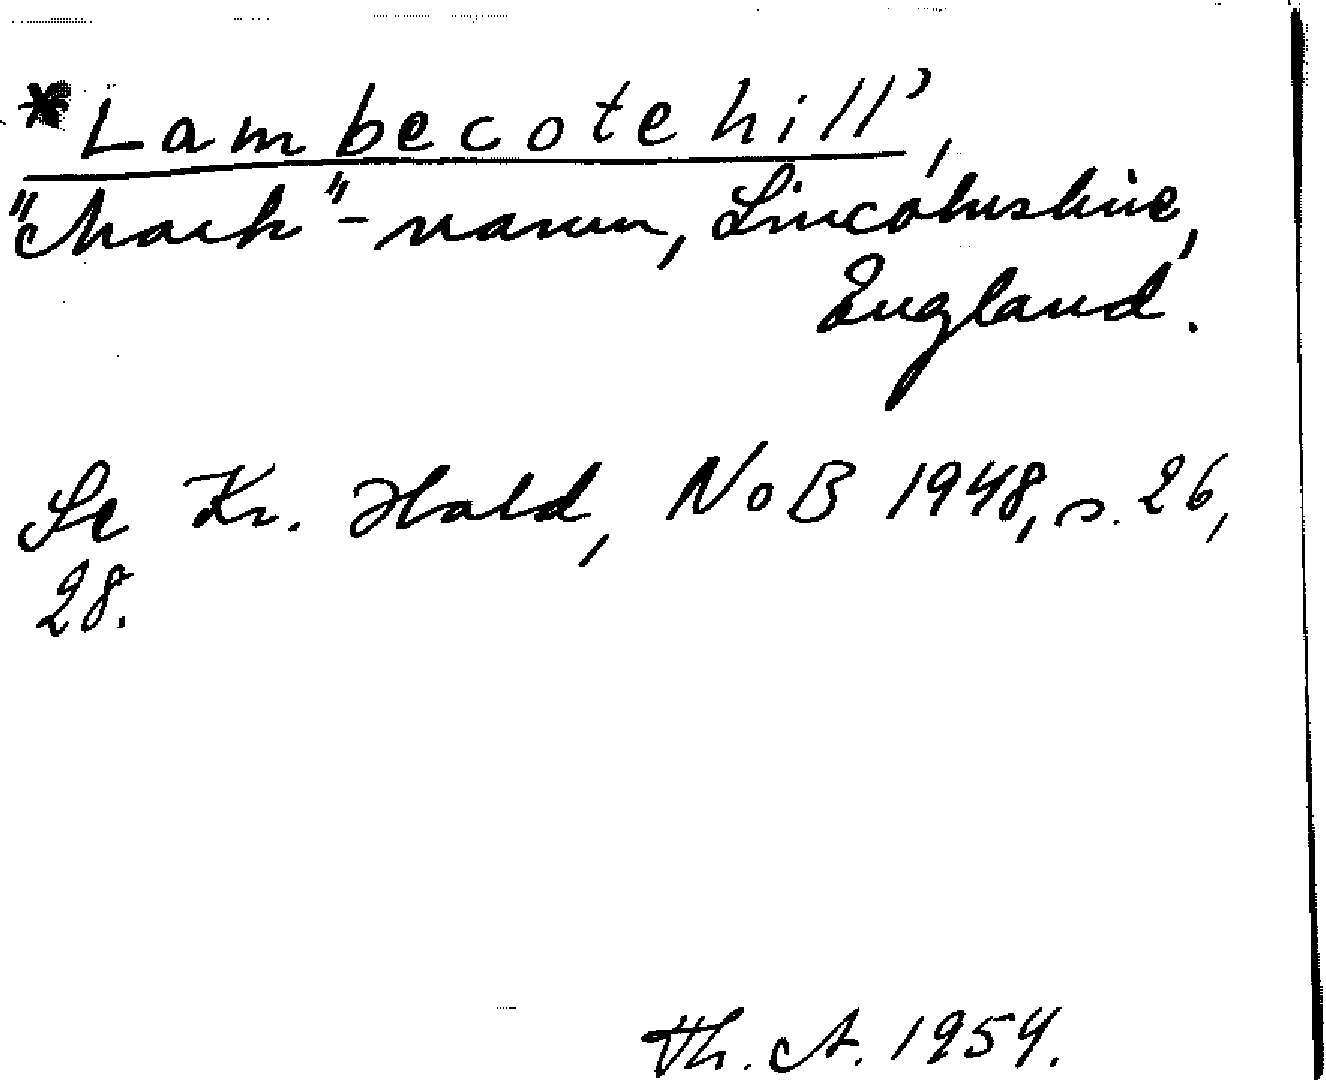 *Lambecotehill',
"Mark"-namn, Lincolnshire,
England.
Se Kr. Hald, NoB 1948, s. 26,
28.
Th. A. 1954.